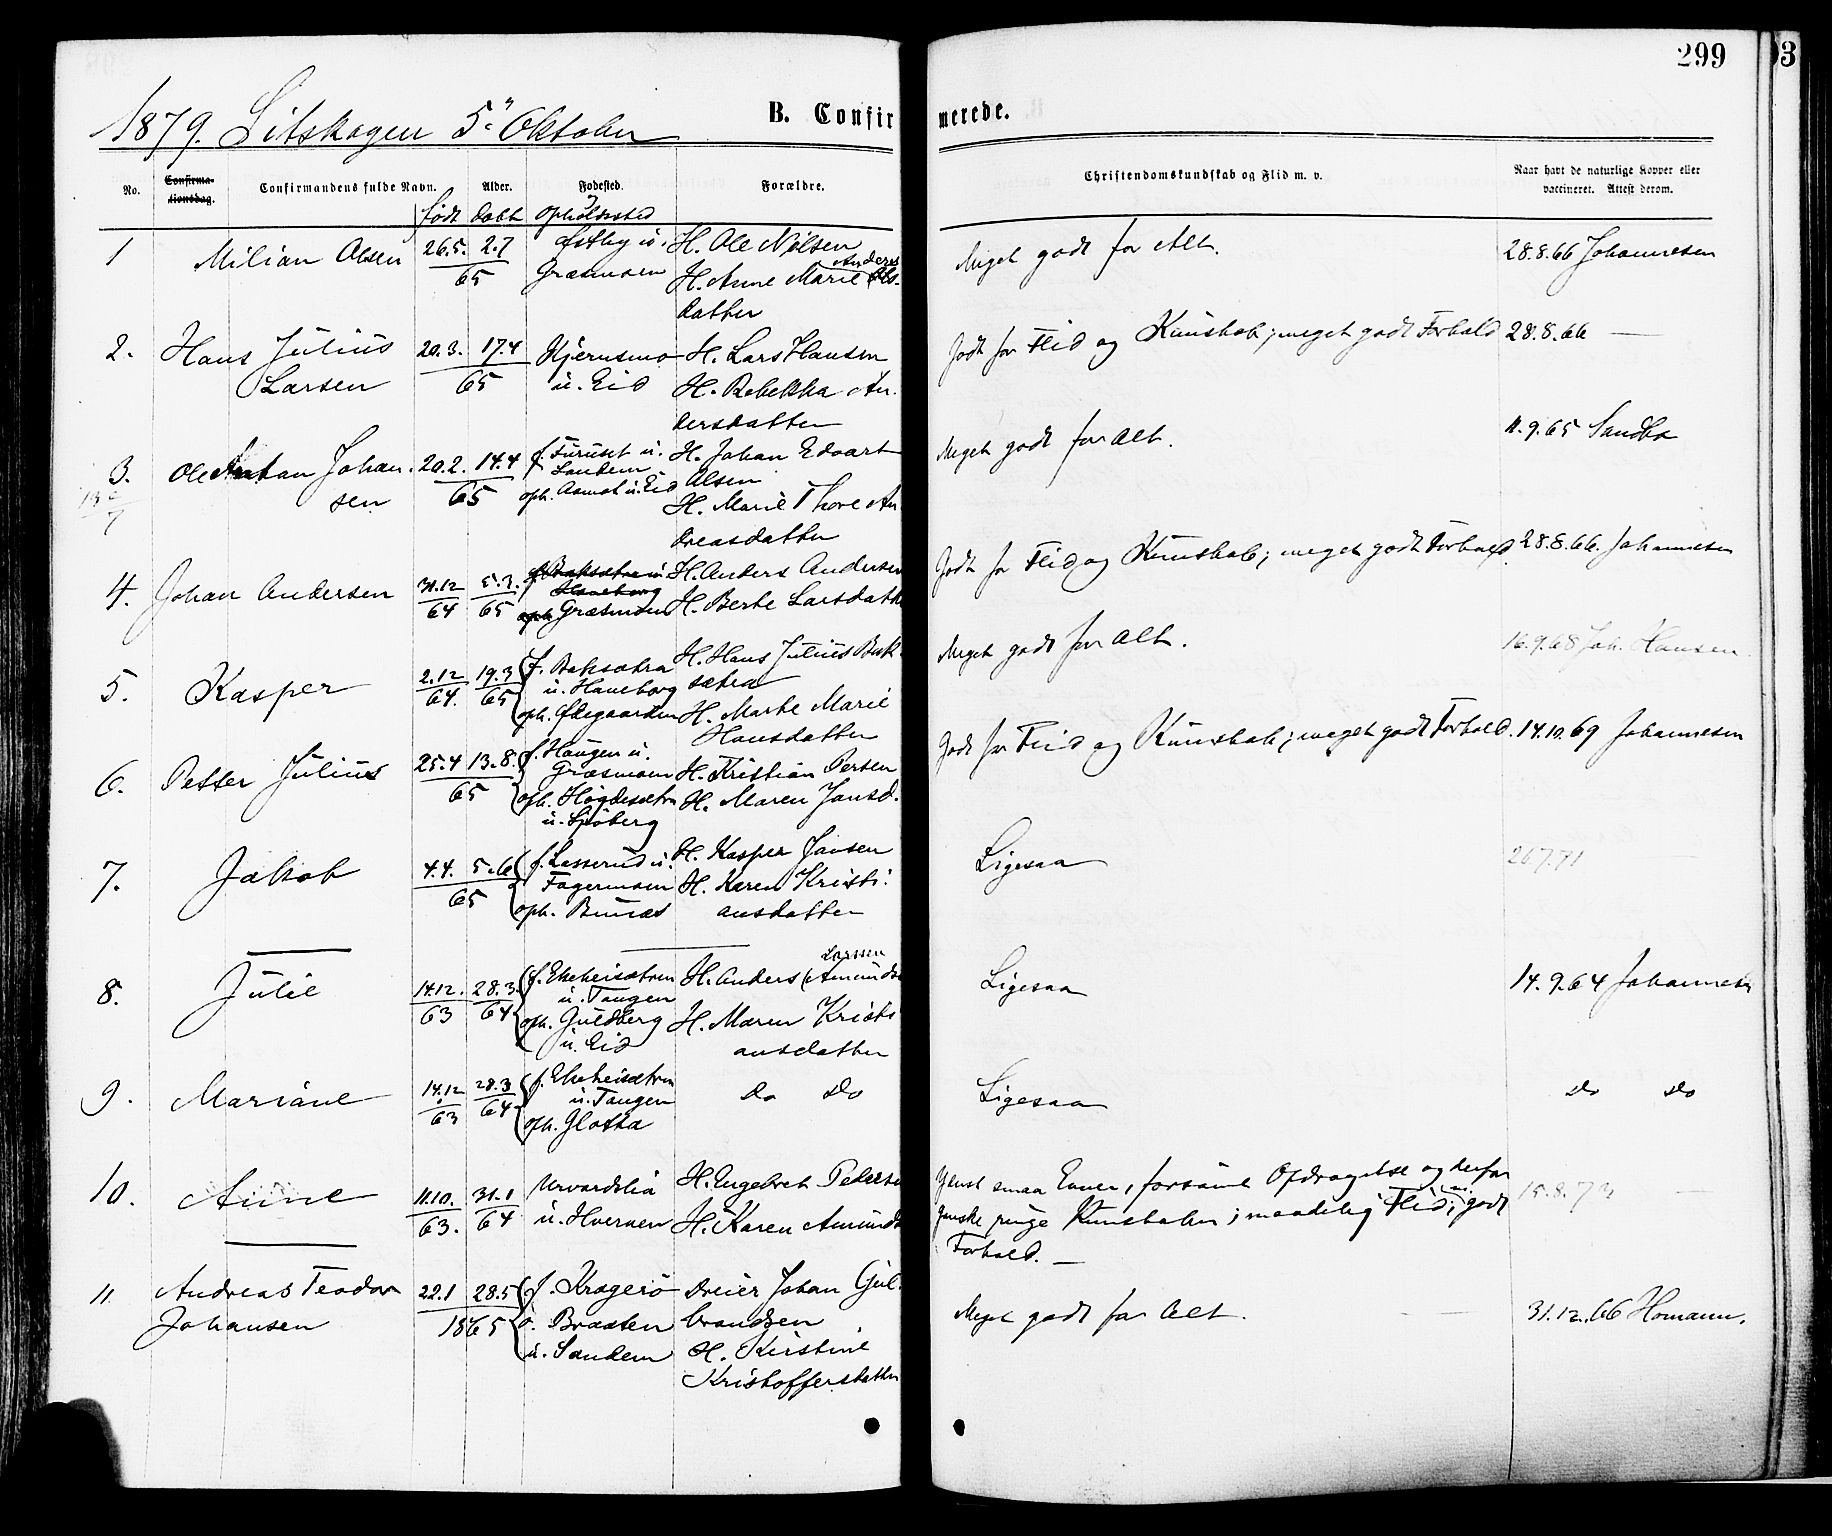 299
1879. Sitskogen 5te Oktober
B. Confirmerede.
No. Confirmationsdag. Confirmandens fulde Navn. Alder. Fødested. Forældre. Christendomskundskab og Flid m. v. Naar havt de naturlige Kopper eller vaccineret. Attest derom.
født døbt Opholdssted
1 Milian Olsen 26.5. 2.7 65 Østby u. Græsmoen
H. Ole Nilsen
H. Anne Marie Anders Ols-
datter
Meget godt for Alt. 28.8.66 Johannesen
2. Hans Julius Larsen 20.3. 17.4 65 Kjernsmo u. Eid
H. Lars Hansen
H. Rebekka An-
dersdatter
Godt for Flid og Kundskab; meget godt Forhold 28.8.66 —
3. Ole Anton Johansen 20.2. 14.4 65 f. Furuset u. Sandem
oph. Aamot u. Eid
H. Johan Edvart
Olsen
H. Marie Thore An-
dreasdatter
Meget godt for Alt. 11.9.65 Sandbo
4. Johan Andersen 31.12 64 5.3. 65 f. Baksætra u. Haneborg
oph. Græsmoen
H. Anders Andersen
H. Berte Larsdatter
Godt for Flid og Kundskab; meget godt Forhold. 28.8.66. Johannesen
5. Kasper 2.12 64. 19.3 65 f. Baksætra
u. Haneborg
oph. Ødegaarden
H. Hans Julius Bak-
sætra
H. Marte Marie
Hansdatter
Meget godt for Alt. 16.9.68 Joh. Hansen
6. Petter Julius 25.4 13.8. 65 f. Haugen u.
Græsmoen
oph. Høgdesætra
u. Sjøberg
H. Kristian Persen
H. Maren Jansd.
Godt for Flid og Kundskab; meget godt Forhold. 14.10.69 Johannesen
7. Jakob 4.4. 5.6 65 f. Lasserud u.
Fagermoen
oph. Bunæs
H. Kasper Jansen
H. Karen Kristi-
ansdatter
Ligesaa 26.7.71
8. Julie 14.12. 63 28.3. 64 f. Ekeheisætren
u. Tangen
oph. Guldberg
u. Eid
H. Anders Larssen (Amunds
H. Maren Kristi
ansdatter
Ligesaa 14.9.64 Johannesen
9. Mariane 14.12 63 28.3 64 f. Ekeheisætren
u. Tangen
oph. Glotta
do do
Ligesaa do do
10. Anne 11.10. 63. 31.1 64
u. Hverven
H. Engebret Pederse
H. Karen Amunds
Yderst smaa Evner, forsømt Opdragelse og derfor
ganske ringe Kundskaber; maadelig Flid; godt
Forhold. — 15.8.73 —
11 Andreas Teodor Johansen 22.1 28.5 1865 f. Kragerø
o. Braaten
u. Sandem
Dreier Johan Gul-
brandsen
H. Kirstine
Kristoffersdatter
Meget godt for Alt. 31.12.66 Homann.